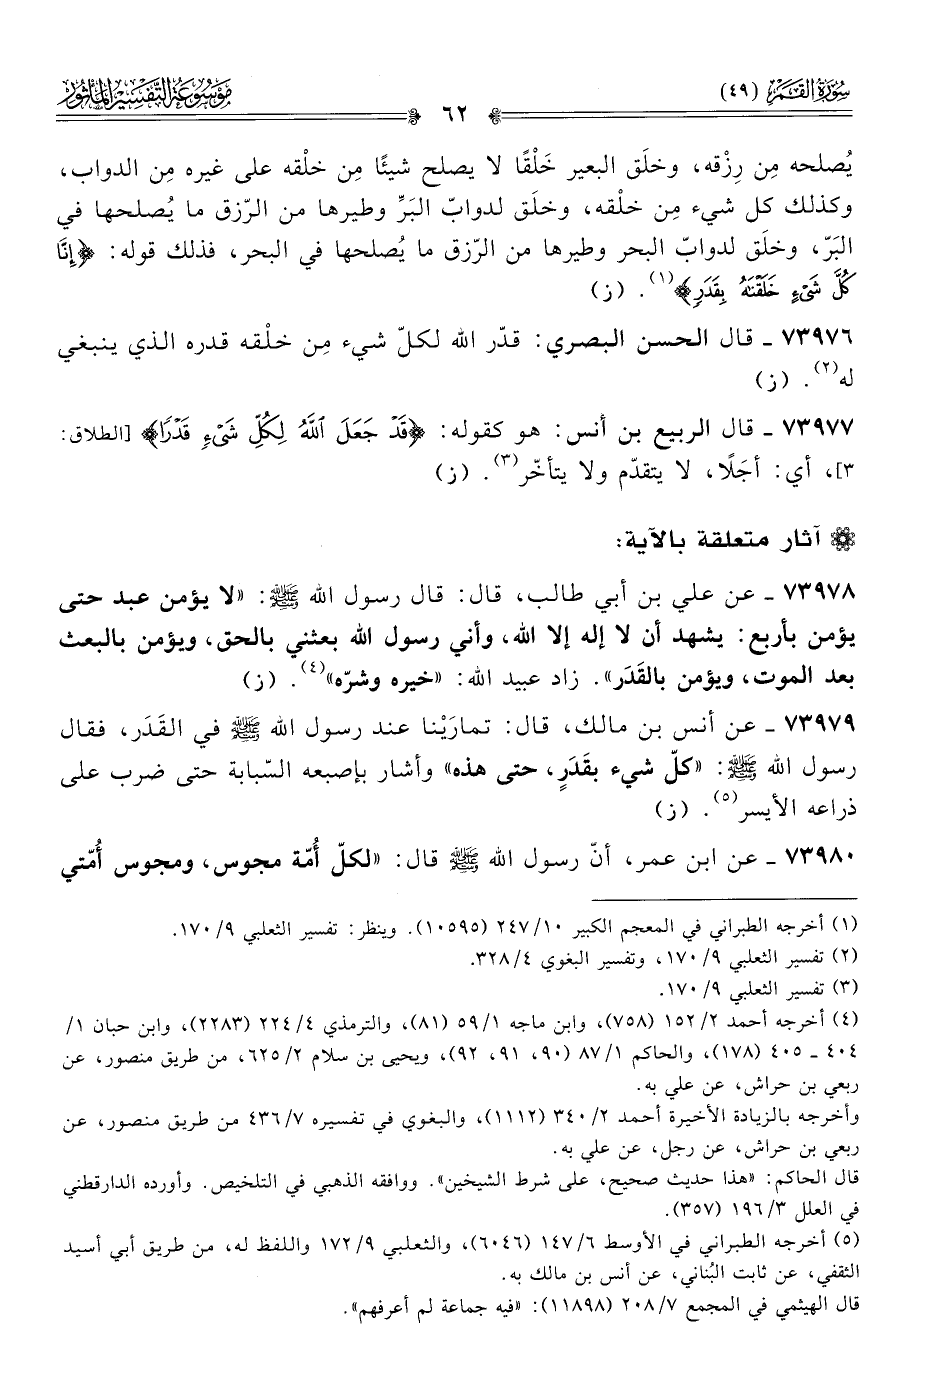 سُورَةُ القَمَرِ (٤٩)
٦٢
مَوْسُوعَةُ التَّفْسِيرِ المَأْثُورِ
يُصلحه مِن رِزْقه، وخلَق البعير خَلْقًا لا يصلح شيئًا مِن خلْقه على غيره مِن الدواب،
وكذلك كل شيء مِن خلْقه، وخلَق لدوابّ البَرِّ وطيرها من الرّزق ما يُصلحها في
البَرّ، وخلَق لدوابّ البحر وطيرها من الرّزق ما يُصلحها في البحر، فذلك قوله: ﴿إِنَّا
كُلَّ شَىْءٍ خَلَقْنَـٰهُ بِقَدَرٍ﴾(١). (ز)
٧٣٩٧٦ ـ قال الحسن البصري: قدّر الله لكلّ شيء مِن خلْقه قدره الذي ينبغي
له(٢). (ز)
٧٣٩٧٧ ـ قال الربيع بن أنس: هو كقوله: ﴿قَدْ جَعَلَ ٱللَّهُ لِكُلِّ شَىْءٍ قَدْرًا﴾ [الطلاق:
٣]، أي: أجَلًا، لا يتقدّم ولا يتأخّر(٣). (ز)
۞ آثار متعلقة بالآية:
٧٣٩٧٨ ـ عن علي بن أبي طالب، قال: قال رسول الله ﷺ: «لا يؤمن عبد حتى
يؤمن بأربع: يشهد أن لا إله إلا الله، وأني رسول الله بعثني بالحق، ويؤمن بالبعث
بعد الموت، ويؤمن بالقَدَر». زاد عبيد الله: «خيره وشرّه»(٤). (ز)
٧٣٩٧٩ ـ عن أنس بن مالك، قال: تمارَيْنا عند رسول الله ﷺ في القَدَر، فقال
رسول الله ﷺ: «كلّ شيء بقَدَرٍ، حتى هذه» وأشار بإصبعه السّبابة حتى ضرب على
ذراعه الأيسر(٥). (ز)
٧٣٩٨٠ ـ عن ابن عمر، أنّ رسول الله ﷺ قال: «لكلّ أُمّة مجوس، ومجوس أُمّتي
(١) أخرجه الطبراني في المعجم الكبير ١٠/ ٢٤٧ (١٠٥٩٥). وينظر: تفسير الثعلبي ٩/ ١٧٠.
(٢) تفسير الثعلبي ٩/ ١٧٠، وتفسير البغوي ٤/ ٣٢٨.
(٣) تفسير الثعلبي ٩/ ١٧٠.
(٤) أخرجه أحمد ٢/ ١٥٢ (٧٥٨)، وابن ماجه ١/ ٥٩ (٨١)، والترمذي ٤/ ٢٢٤ (٢٢٨٣)، وابن حبان ١/
٤٠٤ ـ ٤٠٥ (١٧٨)، والحاكم ١/ ٨٧ (٩٠، ٩١، ٩٢)، ويحيى بن سلام ٢/ ٦٢٥، من طريق منصور، عن
ربعي بن حراش، عن علي به.
وأخرجه بالزيادة الأخيرة أحمد ٢/ ٣٤٠ (١١١٢)، والبغوي في تفسيره ٧/ ٤٣٦ من طريق منصور، عن
ربعي بن حراش، عن رجل، عن علي به.
قال الحاكم: «هذا حديث صحيح، على شرط الشيخين». ووافقه الذهبي في التلخيص. وأورده الدارقطني
في العلل ٣/ ١٩٦ (٣٥٧).
(٥) أخرجه الطبراني في الأوسط ٦/ ١٤٧ (٦٠٤٦)، والثعلبي ٩/ ١٧٢ واللفظ له، من طريق أبي أسيد
الثقفي، عن ثابت البُناني، عن أنس بن مالك به.
قال الهيثمي في المجمع ٧/ ٢٠٨ (١١٨٩٨): «فيه جماعة لم أعرفهم».